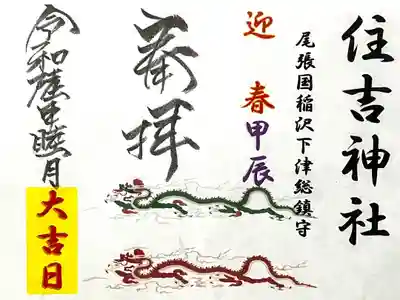 住吉神社
尾張国稲沢下津総鎮守
迎春甲辰
奉拝
令和睦月
大吉日